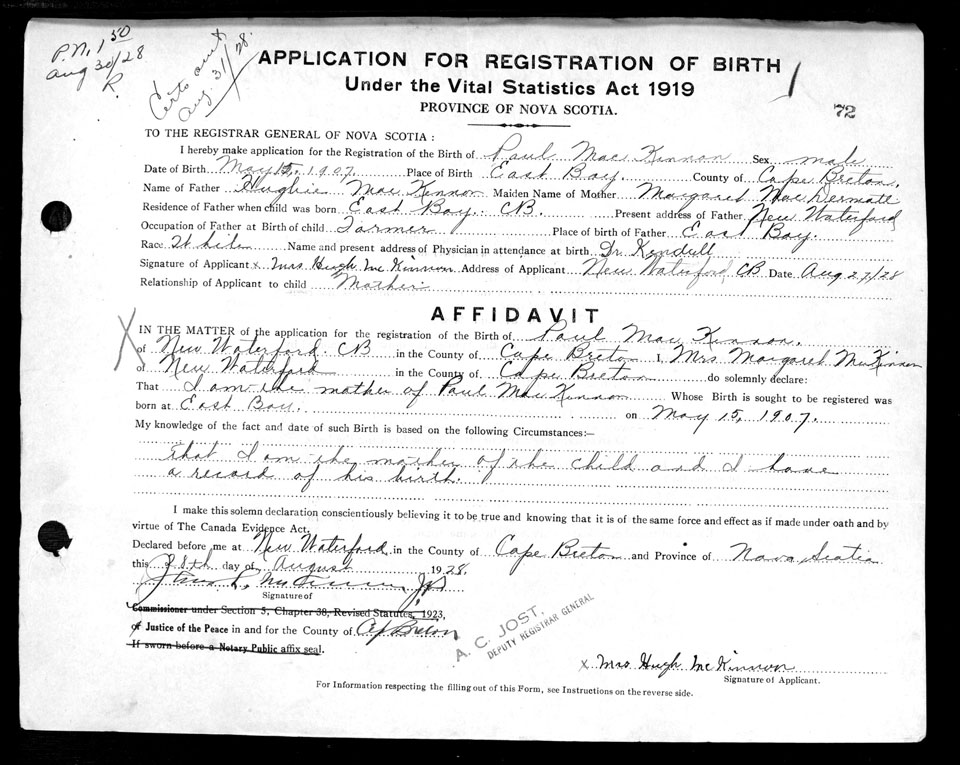 P.N. 1 50
Aug 30/28
R.
Certs out
Aug. 31/28.
APPLICATION FOR REGISTRATION OF BIRTH
Under the Vital Statistics Act 1919
PROVINCE OF NOVA SCOTIA.
72
TO THE REGISTRAR GENERAL OF NOVA SCOTIA :
I hereby make application for the Registration of the Birth of Paul MacKinnon Sex male
Date of Birth May 15, 1907. Place of Birth East Bay. County of Cape Breton.
Name of Father Hughie MacKinnon Maiden Name of Mother Margaret MacDermatt
Residence of Father when child was born East Bay. CB. Present address of Father New Waterford
Occupation of Father at Birth of child Farmer Place of birth of Father East Bay.
Race White Name and present address of Physician in attendance at birth Dr Kendull
Signature of Applicant x Mrs Hugh McKinnon Address of Applicant New Waterford, CB Date Aug 27/28
Relationship of Applicant to child Mother
AFFIDAVIT
X IN THE MATTER of the application for the registration of the Birth of Paul MacKinnon.
of New Waterford. CB in the County of Cape Breton I, Mrs Margaret MacKinnon
of New Waterford in the County of Cape Breton do solemnly declare:
That I am the mother of Paul MacKinnon Whose Birth is sought to be registered was
born at East Bay. on May 15, 1907.
My knowledge of the fact and date of such Birth is based on the following Circumstances:—
That I am the mother of the child and I have
a record of his birth.
I make this solemn declaration conscientiously believing it to be true and knowing that it is of the same force and effect as if made under oath and by
virtue of The Canada Evidence Act.
Declared before me at New Waterford in the County of Cape Breton and Province of Nova Scotia
this 28th day of August 1928.
J.P.
Signature of
Commissioner under Section 5, Chapter 38, Revised Statutes, 1923,
of Justice of the Peace in and for the County of Cape Breton
If sworn before a Notary Public affix seal.
A. C. JOST,
DEPUTY REGISTRAR GENERAL
x Mrs Hugh McKinnon
Signature of Applicant.
For Information respecting the filling out of this Form, see Instructions on the reverse side.